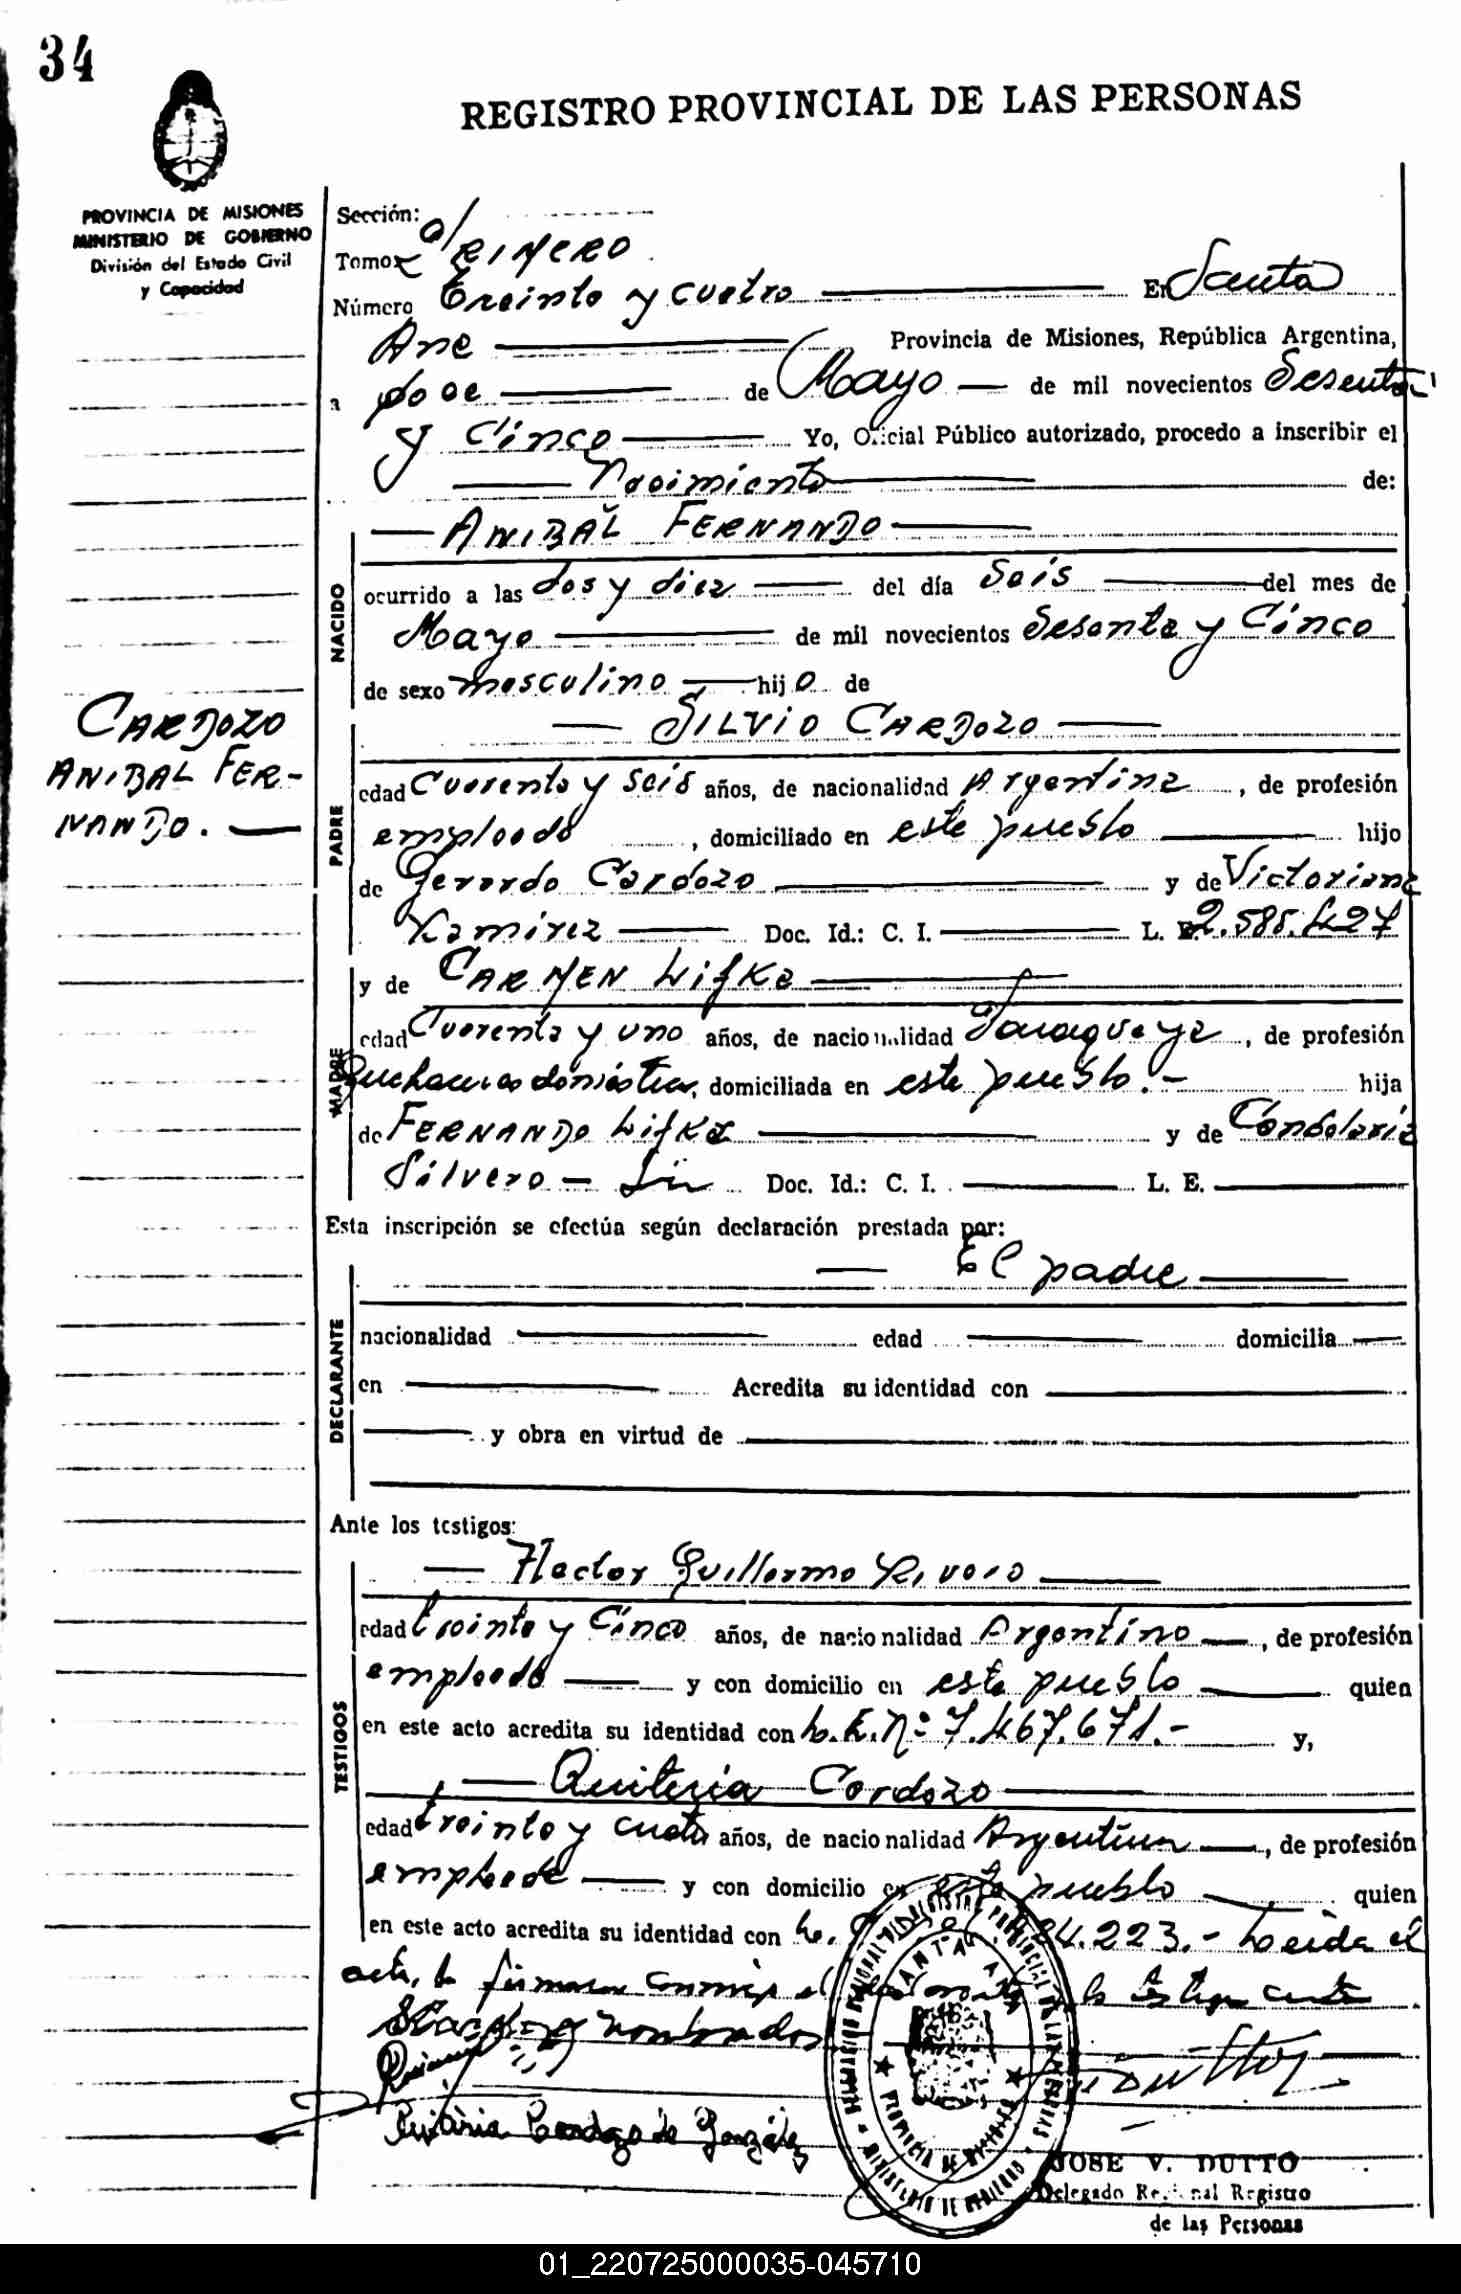 34
REGISTRO PROVINCIAL DE LAS PERSONAS
PROVINCIA DE MISIONES
MINISTERIO DE GOBIERNO
División del Estado Civil
y Capacidad
Sección:
Tomo PRIMERO
Número Treinta y cuatro En Santa
Ana Provincia de Misiones, República Argentina,
a doce de Mayo de mil novecientos Sesenta
y Cinco Yo, Oficial Público autorizado, procedo a inscribir el
Nacimiento de:
ANIBAL FERNANDO
NACIDO
ocurrido a las dos y diez del día Seis del mes de
Mayo de mil novecientos Sesenta y Cinco
de sexo masculino hijo de
CARDOZO
ANIBAL FER-
NANDO.
SILVIO CARDOZO
PADRE
edad Cuarenta y Seis años, de nacionalidad Argentina, de profesión
empleado, domiciliado en este pueblo hijo
de Gerardo Cardozo y de Victoriana
Ramirez Doc. Id.: C. I. L. E. 2.585.427
y de CARMEN Lifka
MADRE
edad Cuarenta y uno años, de nacionalidad Paraguaya, de profesión
Quehaceres domésticos, domiciliada en este pueblo.- hija
de FERNANDO Lifka y de Candelaria
Silvero - Doc. Id.: C. I. L. E.
Esta inscripción se efectúa según declaración prestada por:
El padre
DECLARANTE
nacionalidad edad domicilia
en Acredita su identidad con
y obra en virtud de
Ante los testigos:
Hector Guillermo
TESTIGOS
edad treinta y Cinco años, de nacionalidad Argentino, de profesión
empleado y con domicilio en este pueblo quien
en este acto acredita su identidad con L.E.Nº 7.467.671.- y,
Quiteria Cardozo
edad treinta y cuatro años, de nacionalidad Argentina, de profesión
empleada y con domicilio en este pueblo quien
en este acto acredita su identidad con L. 84.223.- Leída el
acta, la firman conmigo el
nombrados
Quiteria Cardozo de González
SANTA ANA
PROVINCIA DE MISIONES
JOSE V. DUTTO
Delegado Regional Registro
de las Personas
01_220725000035-045710